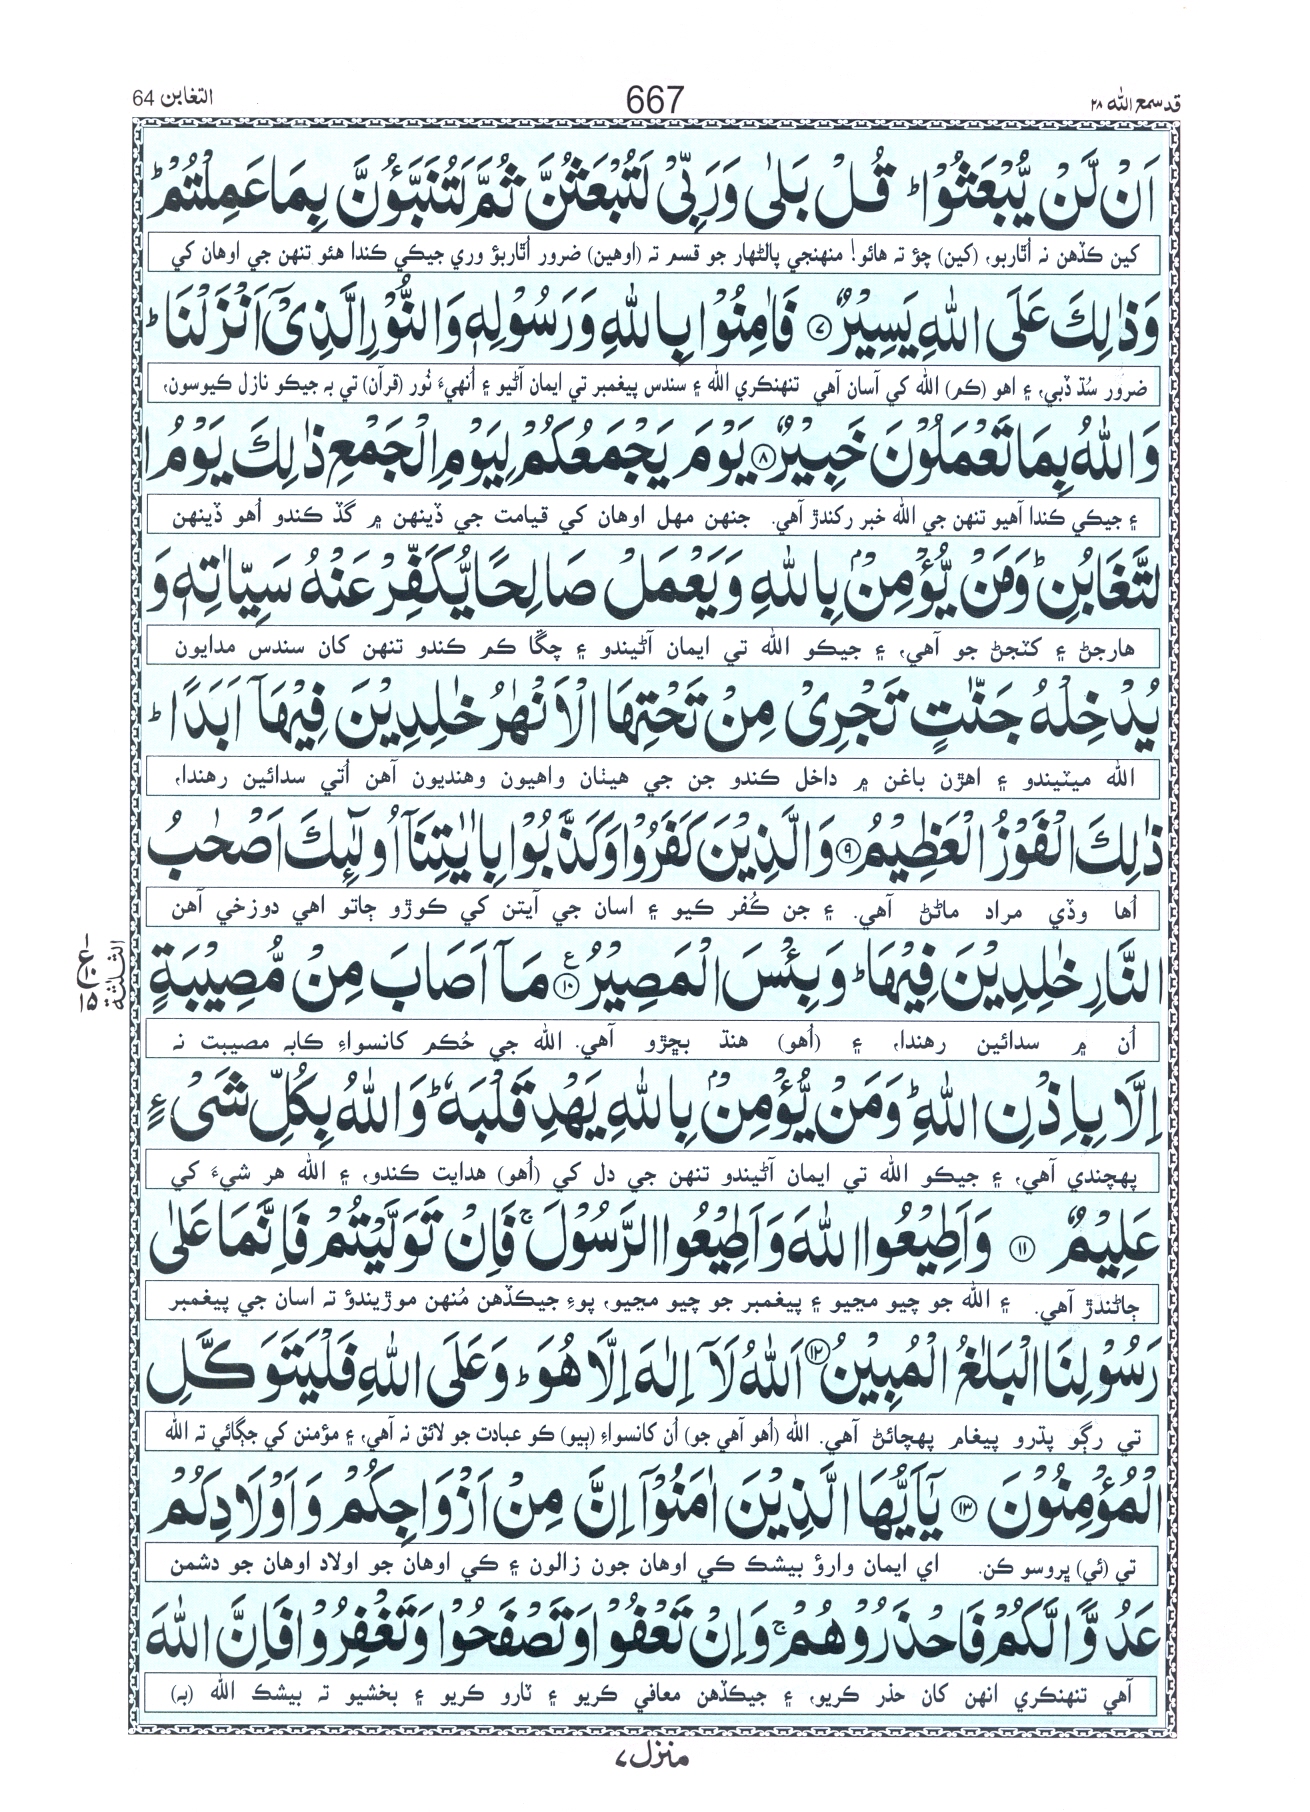 قد سمع الله ٢٨
667
التغابن 64
اَنْ لَّنْ يُّبْعَثُوْا ؕ قُلْ بَلٰى وَرَبِّىْ لَتُبْعَثُنَّ ثُمَّ لَتُنَبَّؤُنَّ بِمَا عَمِلْتُمْ ؕ
کين ڪڏهن نہ اُٿاربو، (کين) چؤ تہ هائو! منهنجي پالڻهار جو قسم تہ (اوهين) ضرور اُٿاربؤ وري جيڪي ڪندا هئو تنهن جي اوهان کي
وَذٰلِكَ عَلَى اللّٰهِ يَسِيْرٌ ﴿٧﴾ فَاٰمِنُوْا بِاللّٰهِ وَرَسُوْلِهٖ وَالنُّوْرِ الَّذِىْٓ اَنْزَلْنَا ؕ
ضرور سُڌ ڏبي، ۽ اهو (ڪم) الله کي آسان آهي تنهنڪري الله ۽ سندس پيغمبر تي ايمان آڻيو ۽ اُنهيءَ نُور (قرآن) تي بہ جيڪو نازل ڪيوسون،
وَاللّٰهُ بِمَا تَعْمَلُوْنَ خَبِيْرٌ ﴿٨﴾ يَوْمَ يَجْمَعُكُمْ لِيَوْمِ الْجَمْعِ ذٰلِكَ يَوْمُ ا
۽ جيڪي ڪندا آهيو تنهن جي الله خبر رکندڙ آهي. جنهن مهل اوهان کي قيامت جي ڏينهن ۾ گڏ ڪندو اُهو ڏينهن
لتَّغَابُنِ ؕ وَمَنْ يُّؤْمِنْۢ بِاللّٰهِ وَيَعْمَلْ صَالِحًا يُّكَفِّرْ عَنْهُ سَيِّاٰتِهٖ وَ
هارجڻ ۽ کٽجڻ جو آهي، ۽ جيڪو الله تي ايمان آڻيندو ۽ چڱا ڪم ڪندو تنهن کان سندس مدايون
يُدْخِلْهُ جَنّٰتٍ تَجْرِىْ مِنْ تَحْتِهَا الْاَنْهٰرُ خٰلِدِيْنَ فِيْهَاۤ اَبَدًا ؕ
الله ميٽيندو ۽ اهڙن باغن ۾ داخل ڪندو جن جي هيٺان واهيون وهنديون آهن اُتي سدائين رهندا،
ذٰلِكَ الْفَوْزُ الْعَظِيْمُ ﴿٩﴾ وَالَّذِيْنَ كَفَرُوْا وَكَذَّبُوْا بِاٰيٰتِنَاۤ اُولٰٓئِكَ اَصْحٰبُ
اُها وڏي مراد ماڻڻ آهي. ۽ جن ڪُفر ڪيو ۽ اسان جي آيتن کي ڪوڙو ڄاتو اهي دوزخي آهن
النَّارِ خٰلِدِيْنَ فِيْهَا ؕ وَبِئْسَ الْمَصِيْرُ ﴿١٠﴾ ع مَاۤ اَصَابَ مِنْ مُّصِيْبَةٍ
الثلاثة
ع
١٥
اُن ۾ سدائين رهندا، ۽ (اُهو) هنڌ بڇڙو آهي. الله جي حُڪم کانسواءِ ڪابہ مصيبت نہ
اِلَّا بِاِذْنِ اللّٰهِ ؕ وَمَنْ يُّؤْمِنْۢ بِاللّٰهِ يَهْدِ قَلْبَهٗ ؕ وَاللّٰهُ بِكُلِّ شَىْءٍ
پهچندي آهي، ۽ جيڪو الله تي ايمان آڻيندو تنهن جي دل کي (اُهو) هدايت ڪندو، ۽ الله هر شيءَ کي
عَلِيْمٌ ﴿١١﴾ وَاَطِيْعُوا اللّٰهَ وَاَطِيْعُوا الرَّسُوْلَ ۚ فَاِنْ تَوَلَّيْتُمْ فَاِنَّمَا عَلٰى
ڄاڻندڙ آهي. ۽ الله جو چيو مڃيو ۽ پيغمبر جو چيو مڃيو، پوءِ جيڪڏهن مُنهن موڙيندؤ تہ اسان جي پيغمبر
رَسُوْلِنَا الْبَلٰغُ الْمُبِيْنُ ﴿١٢﴾ اَللّٰهُ لَاۤ اِلٰهَ اِلَّا هُوَ ؕ وَعَلَى اللّٰهِ فَلْيَتَوَكَّلِ
تي رڳو پڌرو پيغام پهچائڻ آهي. الله (اُهو آهي جو) اُن کانسواءِ (ٻيو) ڪو عبادت جو لائق نہ آهي، ۽ مؤمنن کي جڳائي تہ الله
الْمُؤْمِنُوْنَ ﴿١٣﴾ يٰۤاَيُّهَا الَّذِيْنَ اٰمَنُوْۤا اِنَّ مِنْ اَزْوَاجِكُمْ وَاَوْلَادِكُمْ
تي (ئي) ڀروسو ڪن. اي ايمان وارؤ بيشڪ ڪي اوهان جون زالون ۽ ڪي اوهان جو اولاد اوهان جو دشمن
عَدُوًّا لَّكُمْ فَاحْذَرُوْهُمْ ۚ وَاِنْ تَعْفُوْا وَتَصْفَحُوْا وَتَغْفِرُوْا فَاِنَّ اللّٰهَ
آهي تنهنڪري انهن کان حذر ڪريو، ۽ جيڪڏهن معافي ڪريو ۽ ٽارو ڪريو ۽ بخشيو تہ بيشڪ الله (بہ)
منزل ٧